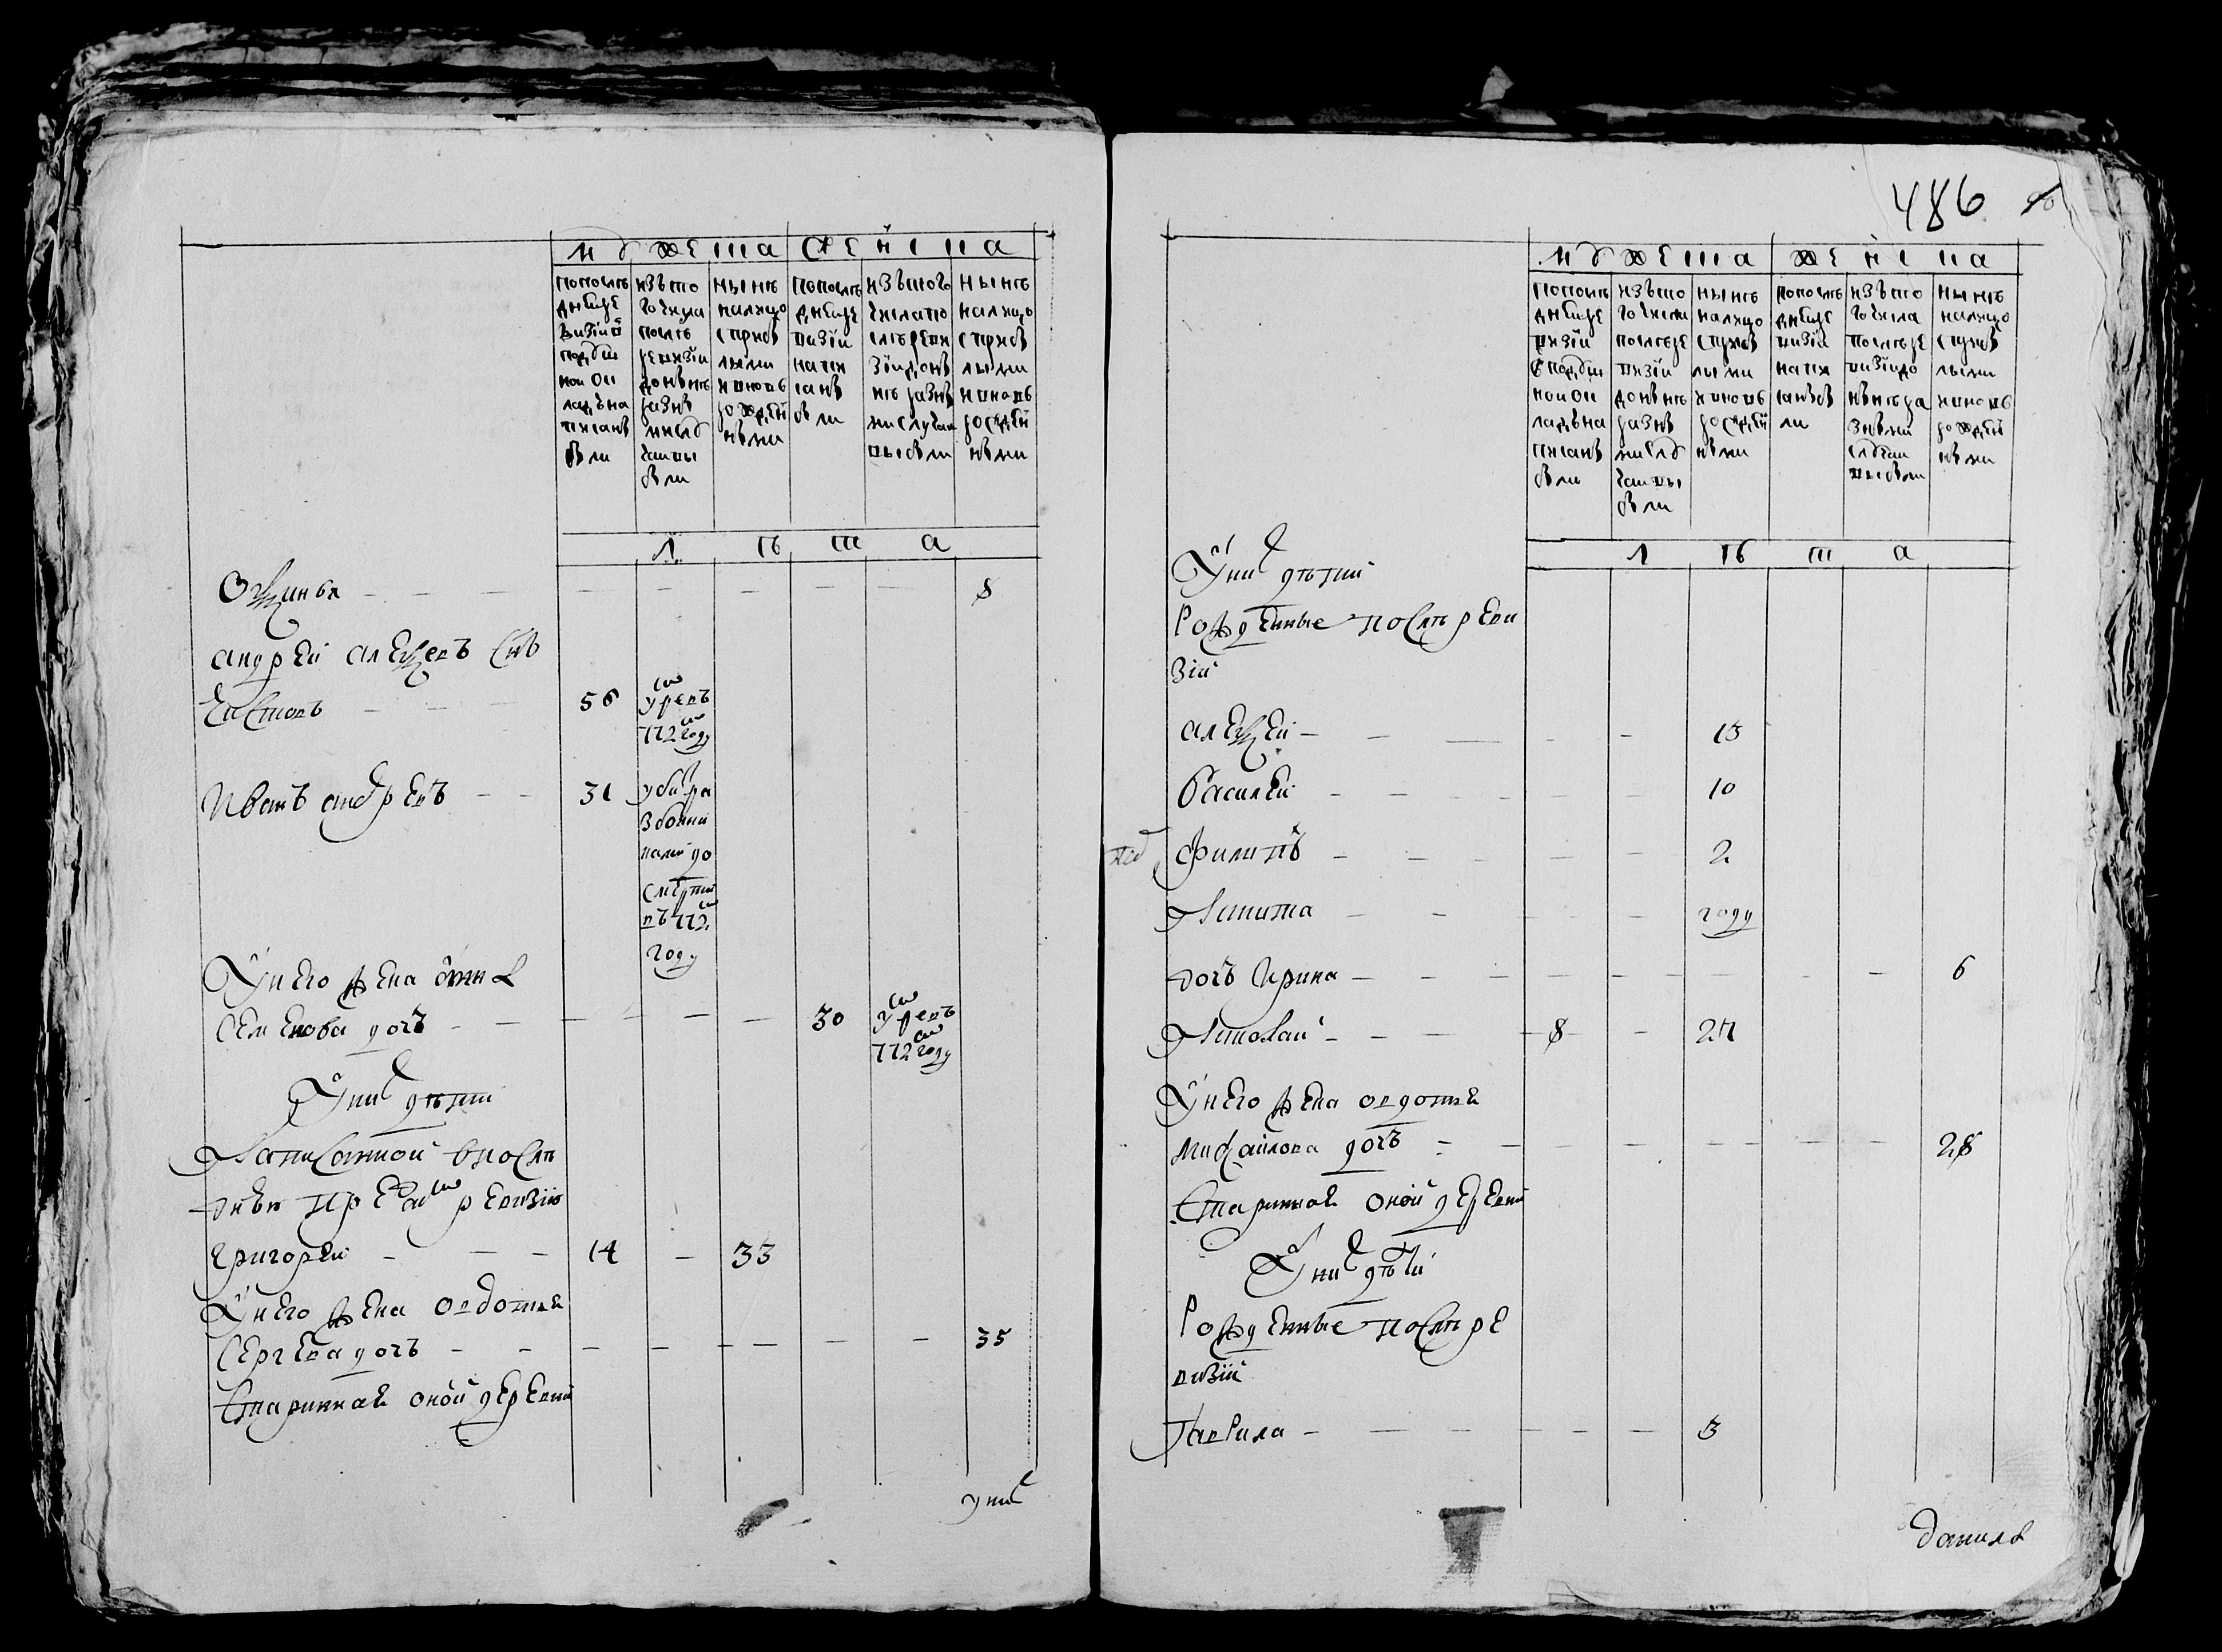 мужеска женска
по последней ревизии в подушной оклад написаны были
из того числа после ревизии до ныне разными случаи выбыли
ныне налицо с прибылыми и вновь рожденными
по последней ревизии написаны были
из того числа после ревизии до ныне разными случаи выбыли
ныне налицо с прибылыми и вновь рожденными
лета
8
андрей алексеевъ снъ
56 умре въ
772 году
Иванъ андревъ 31 убитъ ра
збойни
ками до
смерти
въ 772
году
У него жена анна
семенова дочь 30 умре въ
772 году
У них дѣти
написанной в послѣ
днею пред сим ревизию
григорей 14 33
У него жена овдотья
сергѣева дочь 35
старинная оной деревни
у них
486
мужеска женска
по последней ревизии в подушной оклад написаны были
из того числа после ревизии до ныне разными случаи выбыли
ныне налицо с прибылыми и вновь рожденными
по последней ревизии написаны были
из того числа после ревизии до ныне разными случаи выбыли
ныне налицо с прибылыми и вновь рожденными
лета
У них дѣти
Рожденные послѣ реви
зии
алексей 13
василей 10
филипъ 2
никита году
дочь Ирина 6
николай 8 27
У него жена овдотья
михайлова дочь 28
старинная оной деревни
У них дѣти
Рожденные послѣ ре
визии
гаврила 3
данила